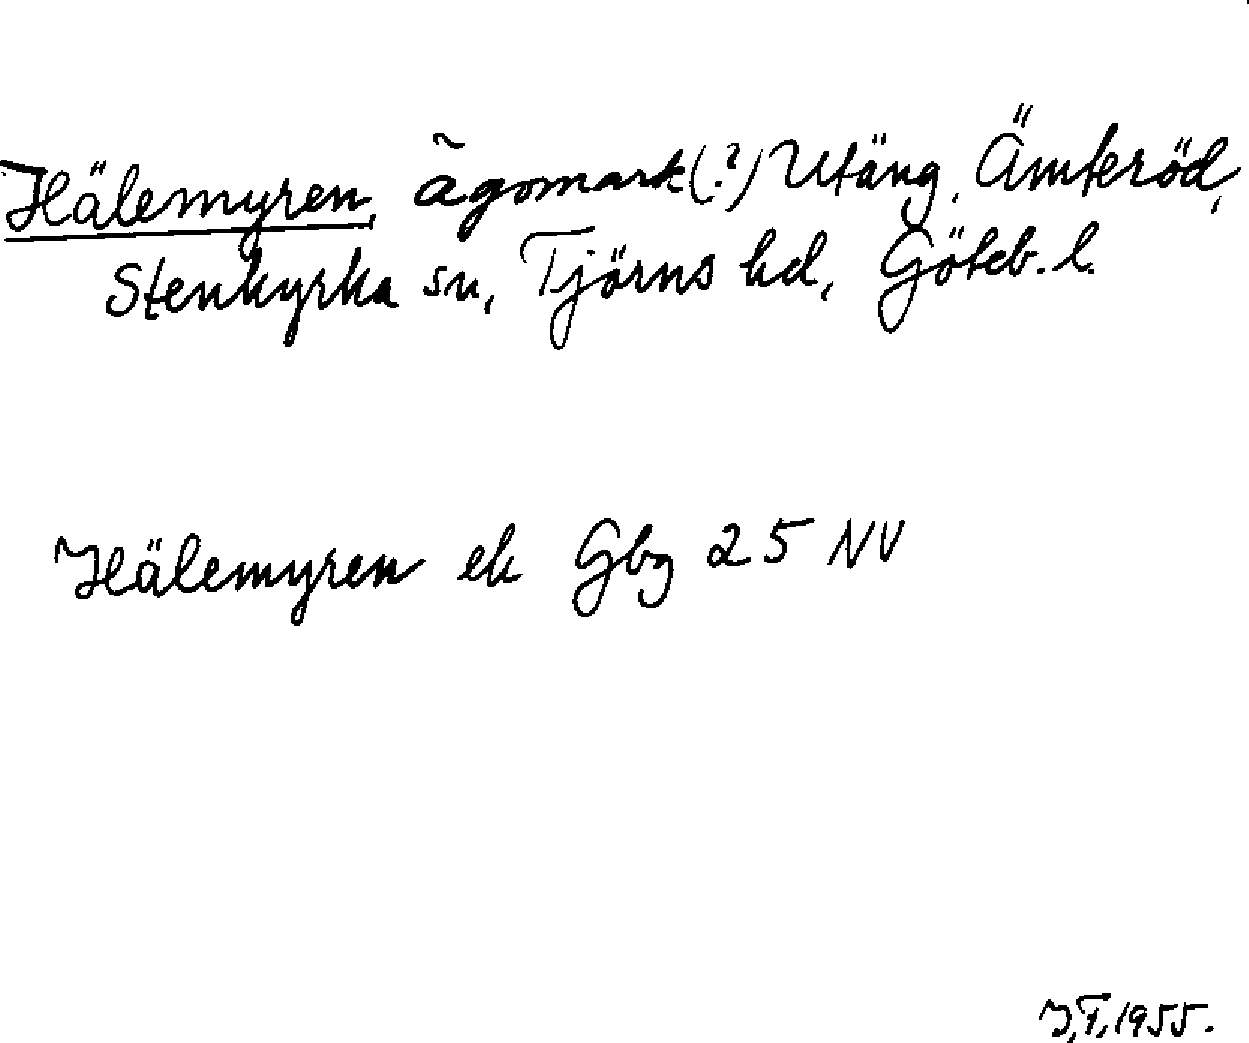 Hälemyren, ägomark(?) Utäng, Ämteröd,
Stenkyrka sn, Tjörns hd, Göteb. l.
Hälemyren ek Gbg 25 NV
J.T. 1955.